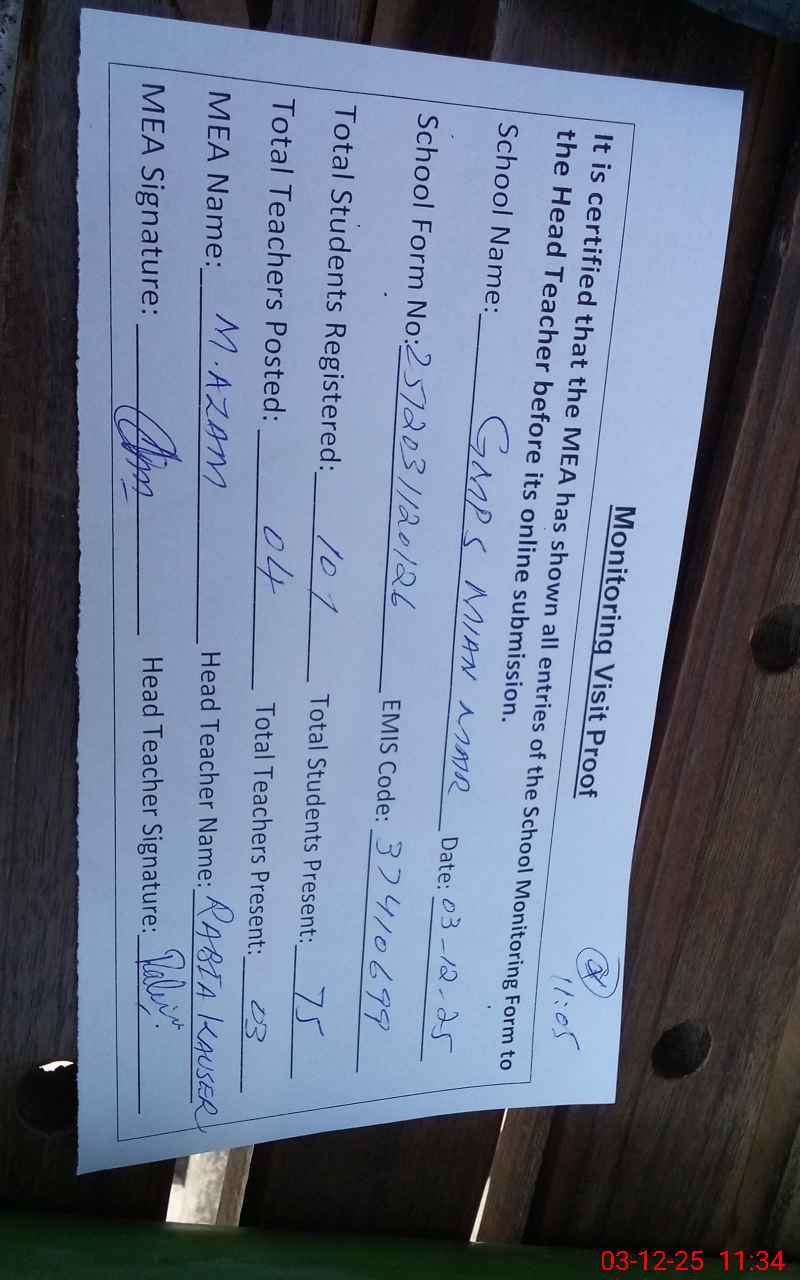 Monitoring Visit Proof
11:05
It is certified that the MEA has shown all entries of the School Monitoring Form to
the Head Teacher before its online submission.
School Name: GMPS MIAN MAIR Date: 03-12-25
School Form No: 25712031120126 EMIS Code: 37410699
Total Students Registered: 101 Total Students Present: 75
Total Teachers Posted: 04 Total Teachers Present: 03
MEA Name: M. AZAM Head Teacher Name: RABIA KAUSER
MEA Signature: Head Teacher Signature:
03-12-25 11:34